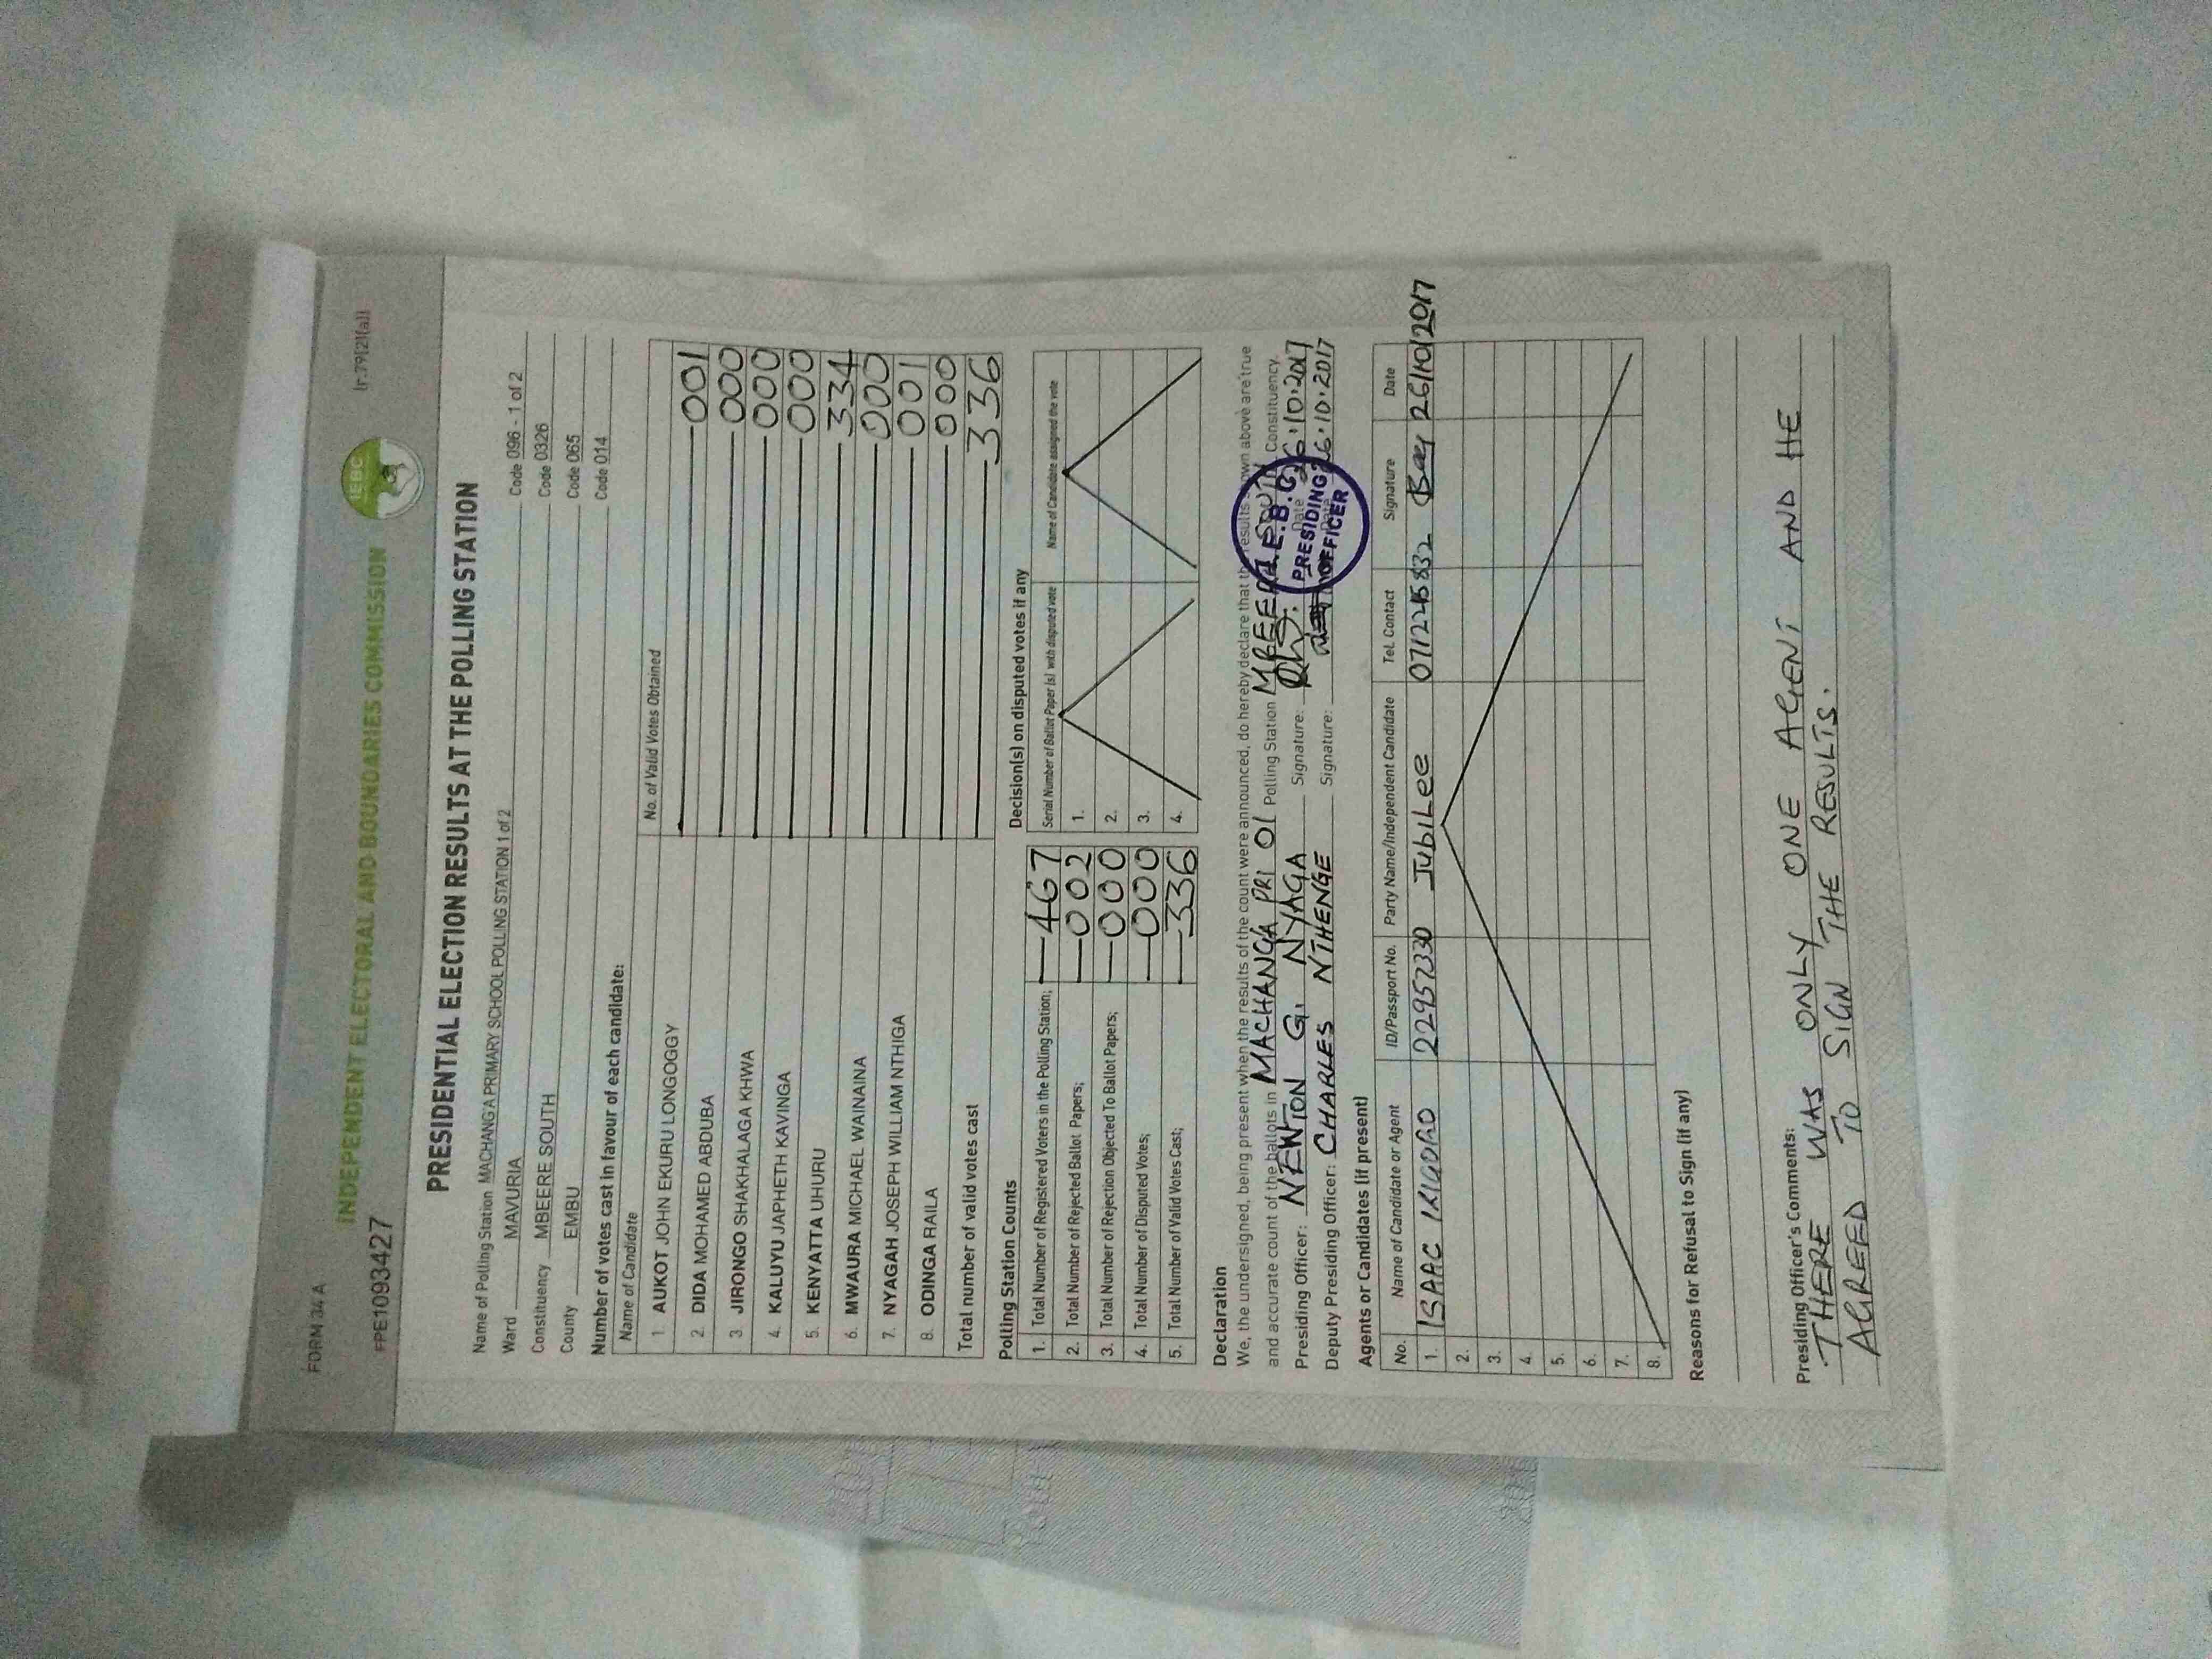 FORM 34 A
(r.79(2)(a))
INDEPENDENT ELECTORAL AND BOUNDARIES COMMISSION
IEBC
FPE1093427
PRESIDENTIAL ELECTION RESULTS AT THE POLLING STATION
Name of Polling Station MACHANG'A PRIMARY SCHOOL POLLING STATION 1 of 2 Code 096 - 1 of 2
Ward MAVURIA Code 0326
Constituency MBEERE SOUTH Code 065
County EMBU Code 014
Number of votes cast in favour of each candidate:
Name of Candidate No. of Valid Votes Obtained
1. AUKOT JOHN EKURU LONGOGGY 001
2. DIDA MOHAMED ABDUBA 000
3. JIRONGO SHAKHALAGA KHWA 000
4. KALUYU JAPHETH KAVINGA 000
5. KENYATTA UHURU 334
6. MWAURA MICHAEL WAINAINA 000
7. NYAGAH JOSEPH WILLIAM NTHIGA 001
8. ODINGA RAILA 000
Total number of valid votes cast 336
Polling Station Counts
1. Total Number of Registered Voters in the Polling Station; 467
2. Total Number of Rejected Ballot Papers; 002
3. Total Number of Rejection Objected To Ballot Papers; 000
4. Total Number of Disputed Votes; 000
5. Total Number of Valid Votes Cast; 336
Decision(s) on disputed votes if any
Serial Number of Ballot Paper(s) with disputed vote Name of Candidate assigned the vote
1.
2.
3.
4.
Declaration
We, the undersigned, being present when the results of the count were announced, do hereby declare that the results shown above are true
and accurate count of the ballots in MACHANGA PRI 01 Polling Station MBEERE SOUTH Constituency.
Presiding Officer: NEWTON G. NYAGA Signature: Date 26.10.2017
Deputy Presiding Officer: CHARLES NTHENGE Signature: Date 26.10.2017
I.E.B.C
PRESIDING
OFFICER
Agents or Candidates (if present)
No. Name of Candidate or Agent ID/Passport No. Party Name/Independent Candidate Tel. Contact Signature Date
1. ISAAC 22957330 JubiLee 26/10/2017
2.
3.
4.
5.
6.
7.
8.
Reasons for Refusal to Sign (if any)
Presiding Officer's Comments:
THERE WAS ONLY ONE AGENT AND HE
AGREED TO SIGN THE RESULTS.